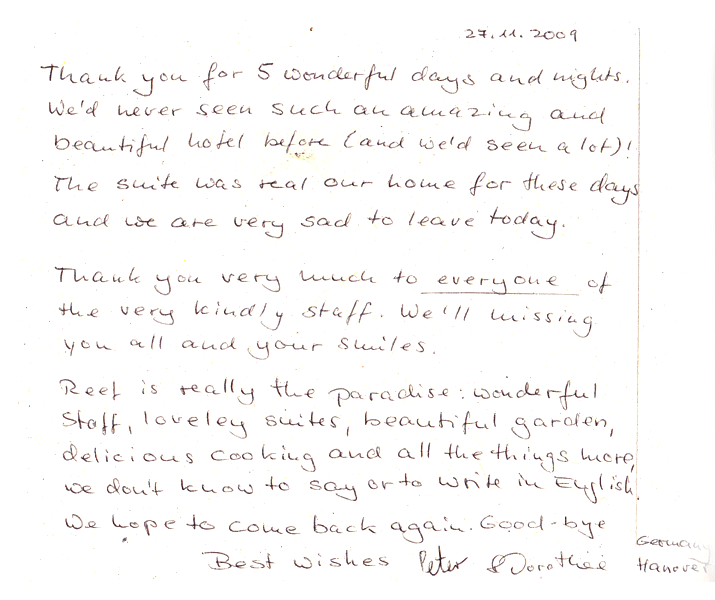 27.11.2009
Thank you for 5 wonderful days and nights.
We'd never seen such an amazing and
beautiful hotel before (and we'd seen a lot)!
The suite was real our home for these days
and we are very sad to leave today.
Thank you very much to everyone of
the very kindly staff. We'll missing
you all and your smiles.
Reef is really the paradise: wonderful
Staff, loveley suites, beautiful garden,
delicious cooking and all the things more,
we don't know to say or to write in English.
We hope to come back again. Good-bye
Best wishes Peter & Dorothee
Germany
Hanover